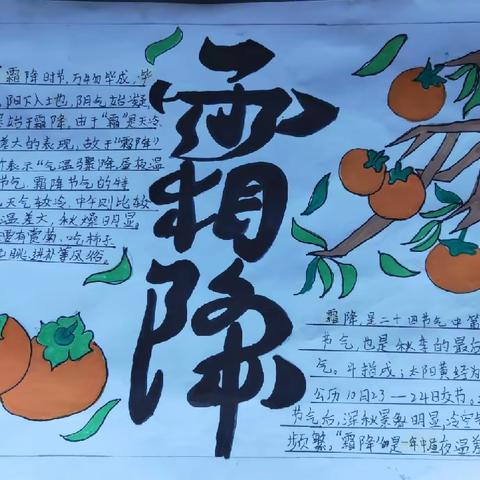 霜降时节,万物毕成,毕
,阳下入土也,阴气始凝,
始于霜降,由于"霜"是天冷
差大的表现,故于"霜降"
表示"气温骤降昼夜温
节气,霜降节气的特
天气较冷,中午则比较
温差大,秋燥明显,
要有赏菊,吃柿子
眺,进补等风俗。
霜降
霜降,是二十四节气中第
节气,也是秋季的最后
气。斗指戌;太阳黄经为
公历10月23—24日交节。
节气后,深秋景象明显,冷空
频繁,"霜降"是一年中昼夜温差